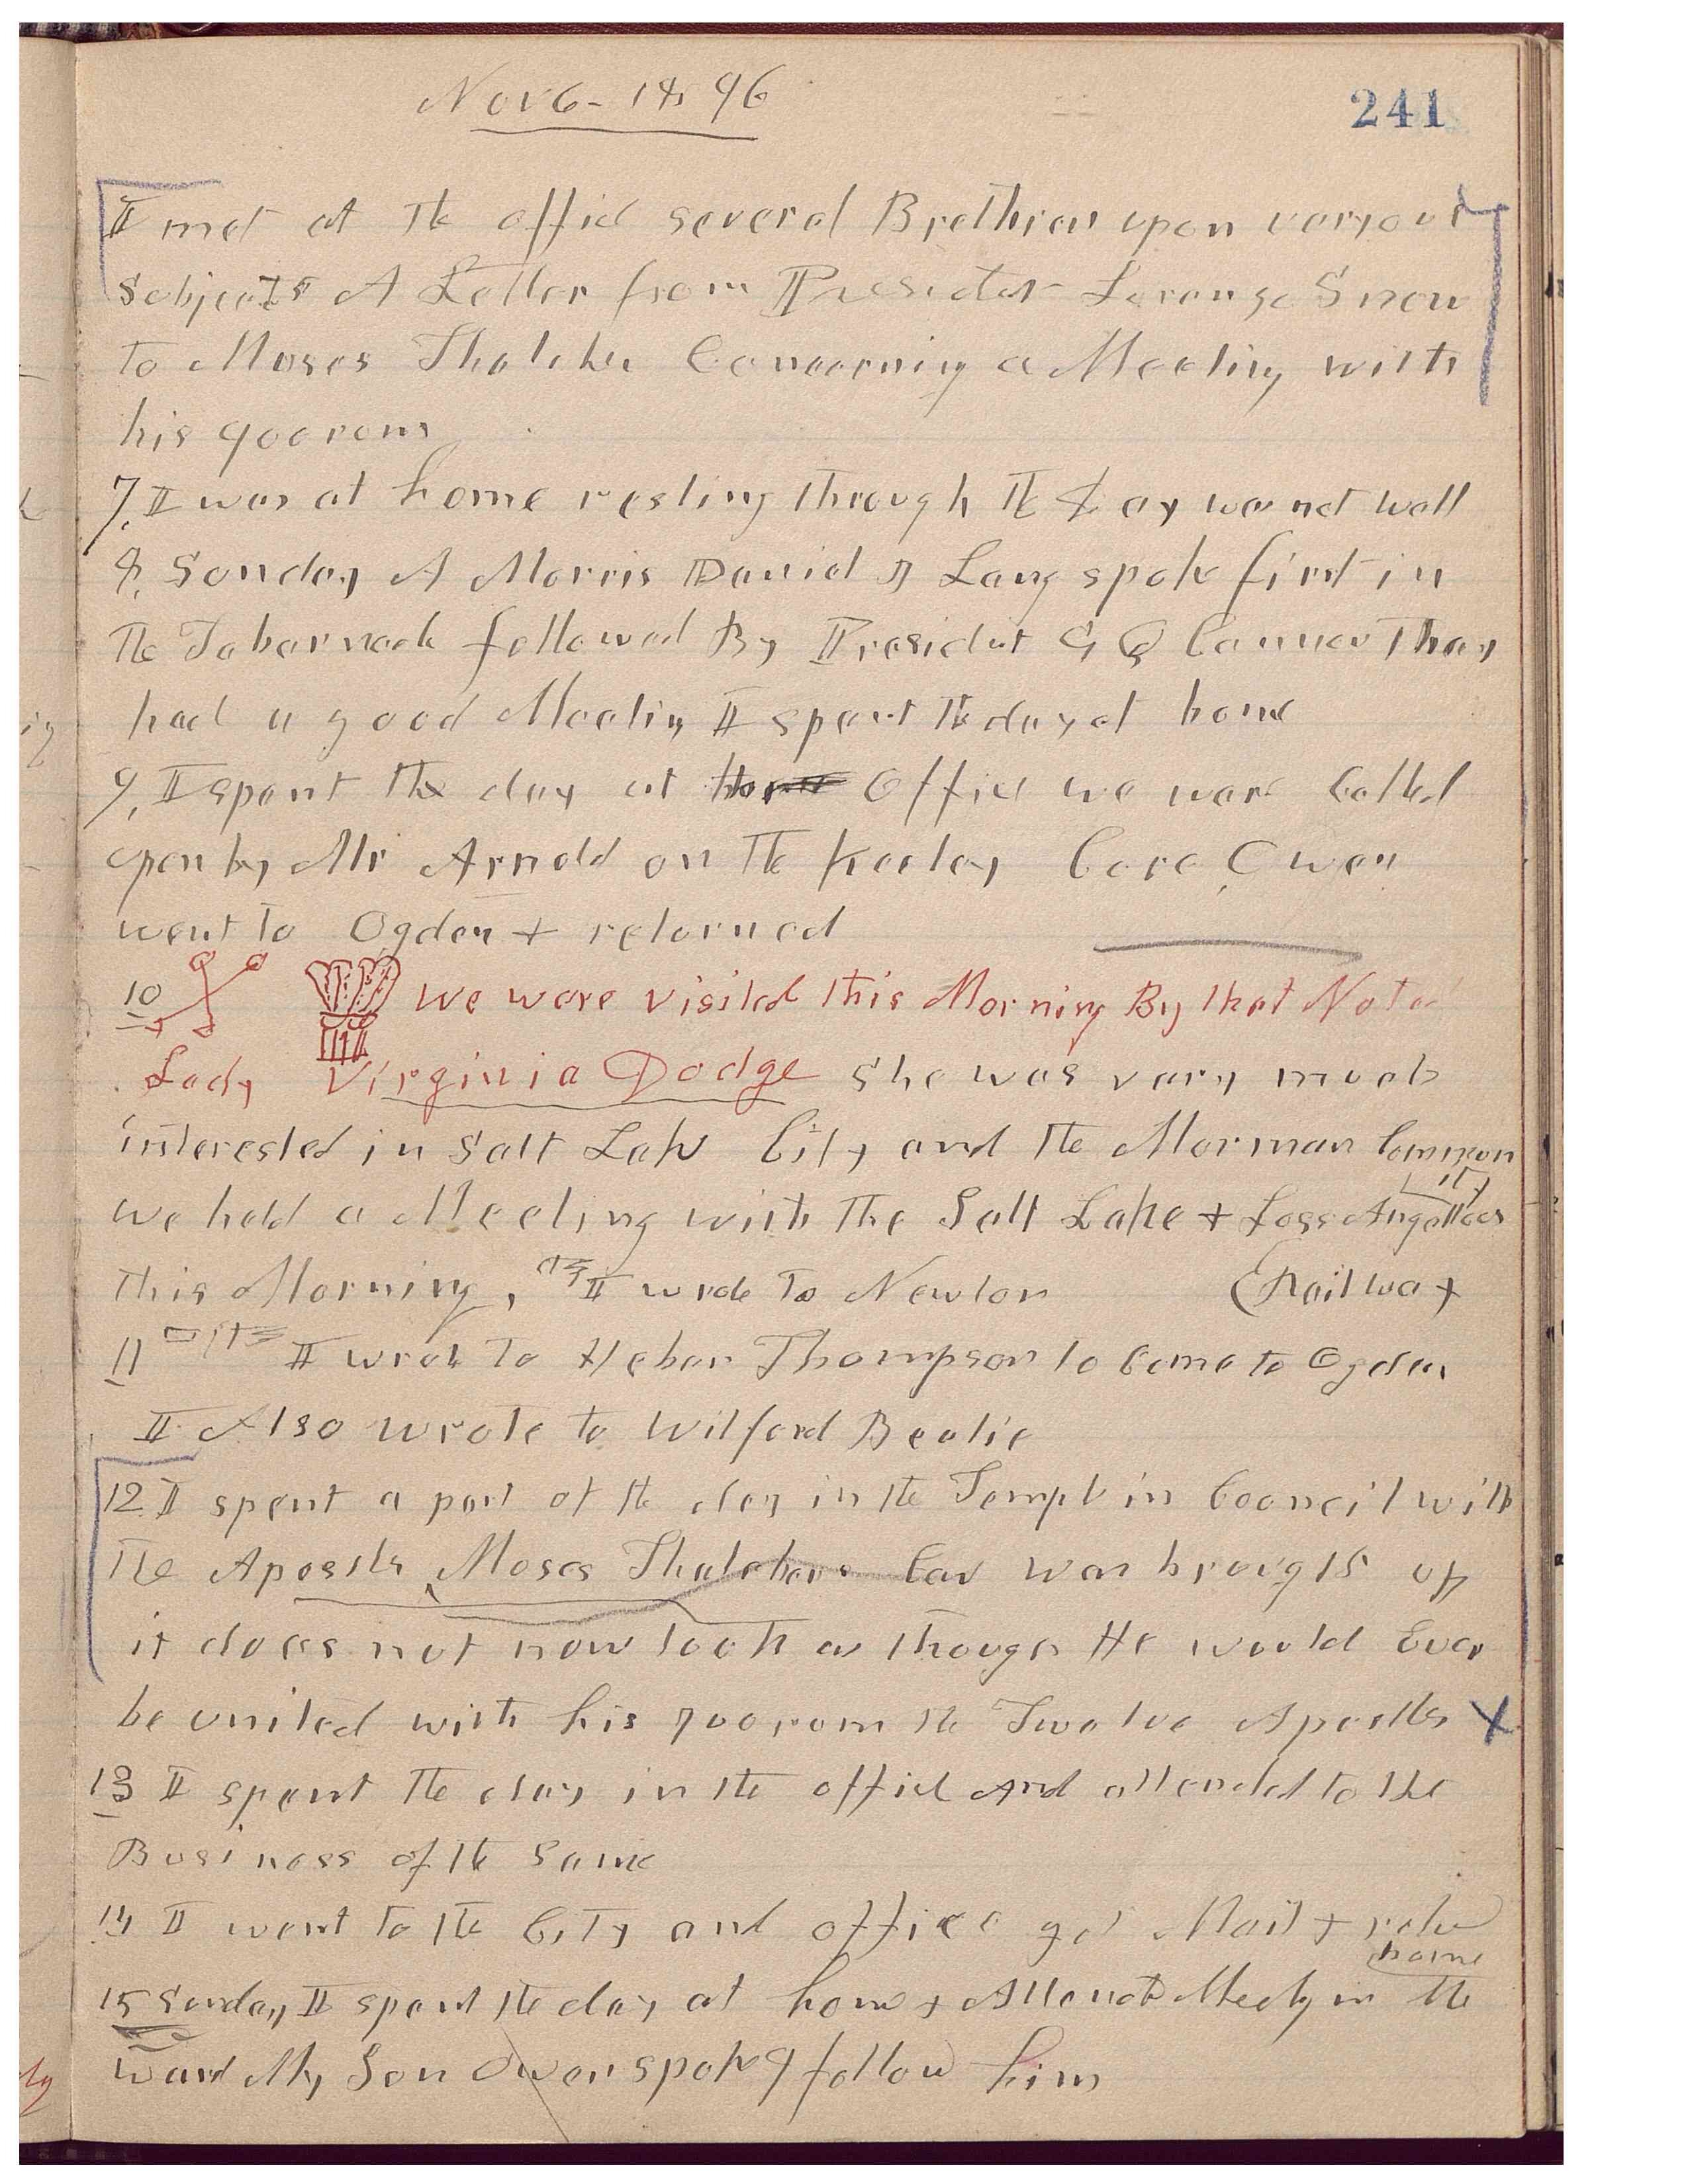 Nov 6 - 1896
241
I met at the office several Brethren upon varyous
subjects A Letter from President Lorenzo Snow
to Moses Thatcher Concerning a Meeting with
his quorom
7, I was at home resting through the day was not well
8, Sunday A Morris David D Lang spoke first in
the Tabernacle followed By President G Q Cannon They
had a good Meeting I spent the day at home
9, I spent the day at Office we ware Called
upon by Mr Arnold on the Keeley Cure, Owen
went to Ogden & returned
10 We were visited this Morning By that Noted
Lady Virginia Dodge She was vary much
interested in Salt Lake City and the Morman Commun
ity
we held a Meeting with the Salt Lake & Loss Angelloes
this Morning, I wrote to Newton (Railway
11 I wrote to Heber Thompson to Come to Ogden
I Also wrote to Wilford Beatie
12 I spent a part of the day in the Temple in Council with
the Apostls Moses Thatchers Case was brought up
it does not now look as though He would Ever
be united with his quorom the Twelve Apostles X
13 I spent the day in the office And attended to the
Business of the same
14 I went to the City and office got Mail &
home
15 Sunday I spent the day at home & Attended Meeting in the
ward My Son Owen spoke & I follow him